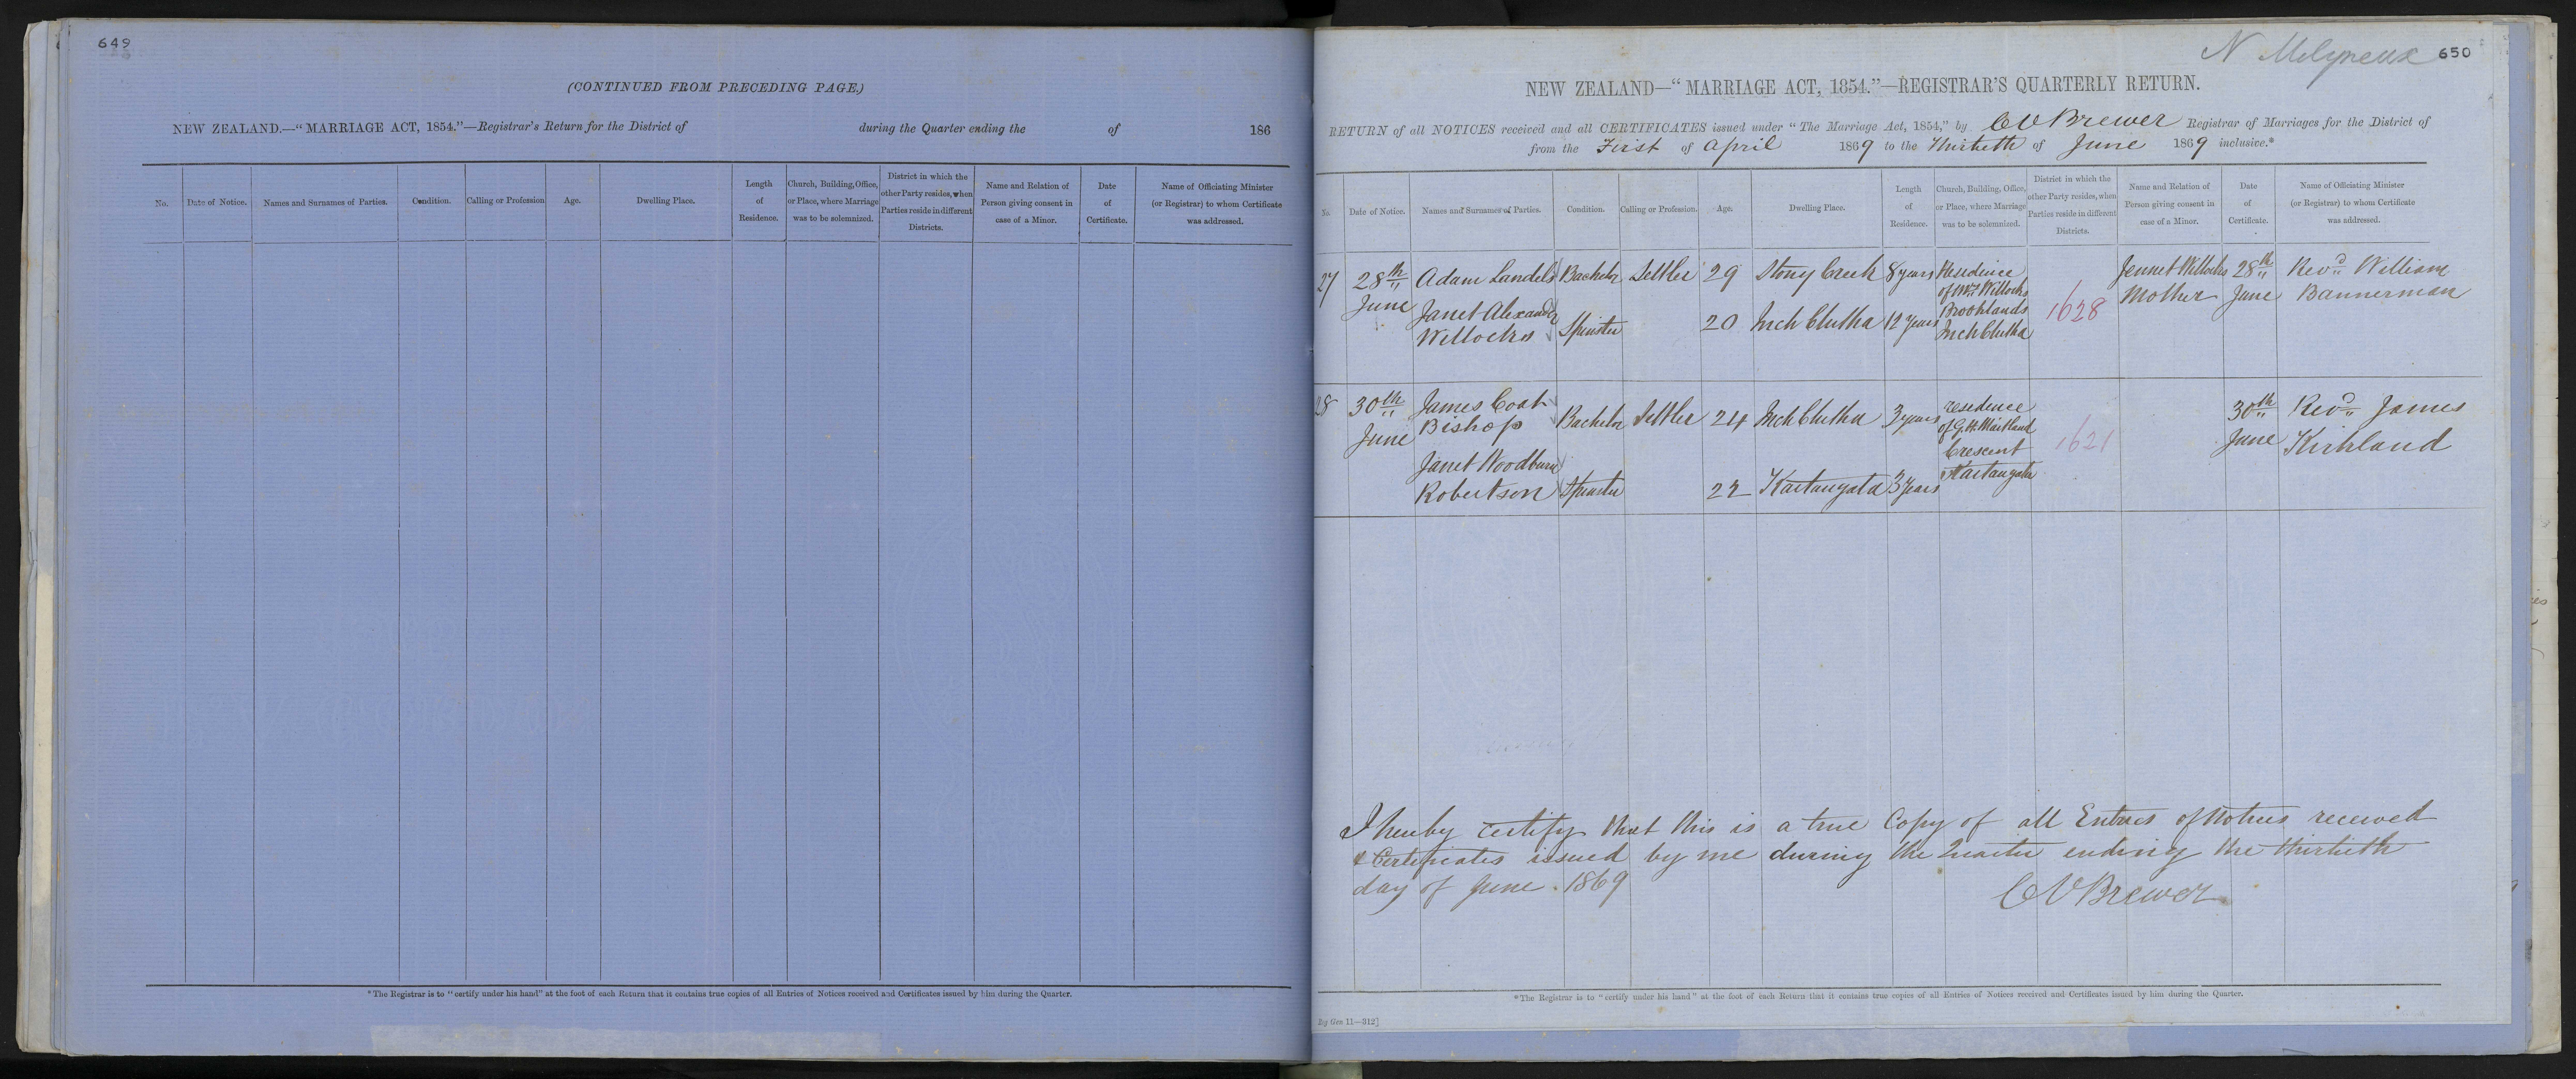 649
(CONTINUED FROM PRECEDING PAGE.)
NEW ZEALAND.—"MARRIAGE ACT, 1854."—Registrar's Return for the District of during the Quarter ending the of 186
No. Date of Notice. Names and Surnames of Parties. Condition. Calling or Profession Age. Dwelling Place. Length of Residence. Church, Building, Office, or Place, where Marriage was to be solemnized. District in which the other Party resides, when Parties reside in different Districts. Name and Relation of Person giving consent in case of a Minor. Date of Certificate. Name of Officiating Minister (or Registrar) to whom Certificate was addressed.
*The Registrar is to "certify under his hand" at the foot of each Return that it contains true copies of all Entries of Notices received and Certificates issued by him during the Quarter.
N Molyneux 650
NEW ZEALAND—"MARRIAGE ACT, 1854."—REGISTRAR'S QUARTERLY RETURN.
RETURN of all NOTICES received and all CERTIFICATES issued under "The Marriage Act, 1854," by C V Brewer Registrar of Marriages for the District of
from the First of April 1869 to the Thirtieth of June 1869 inclusive.*
No. Date of Notice. Names and Surnames of Parties. Condition. Calling or Profession. Age. Dwelling Place. Length of Residence. Church, Building, Office, or Place, where Marriage was to be solemnized. District in which the other Party resides, when Parties reside in different Districts. Name and Relation of Person giving consent in case of a Minor. Date of Certificate. Name of Officiating Minister (or Registrar) to whom Certificate was addressed.
27 28th Adam Landels Bachelor Settler 29 Stony Creek 8 years Residence Jennet Willocks 28th Revd William
June of Mrs Willocks Mother June Bannerman
Janet Alexander Brooklands 1628
Willocks Spinster 20 Inch Clutha 12 years Inch Clutha
28 30th James Coat residence 30th Revd James
June Bishop Bachelor Settler 24 Inch Clutha 3 years of G.H. Maitland June Kirkland
Crescent 1621
Janet Woodburn Kaitangata
Robertson Spinster 22 Kaitangata 3 years
I hereby certify that this is a true Copy of all Entries of Notices received
& Certificates issued by me during the Quarter ending the thirtieth
day of June 1869
C V Brewer
*The Registrar is to "certify under his hand" at the foot of each Return that it contains true copies of all Entries of Notices received and Certificates issued by him during the Quarter.
Reg Gen 11—312]